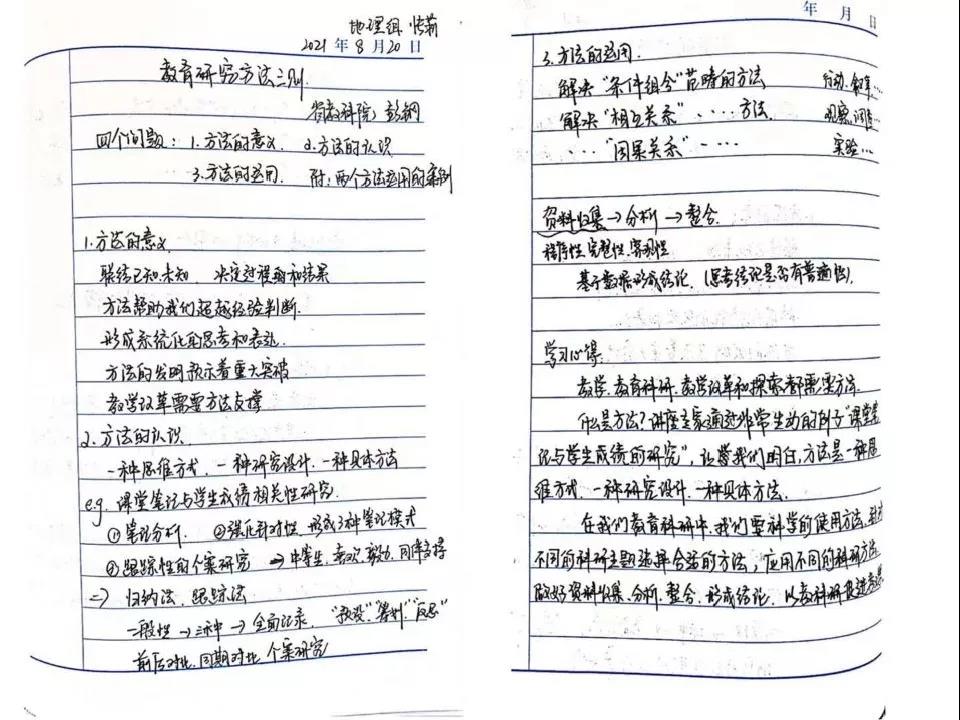 地理组 张莉
2021年8月20日
教育研究方法三则
省教科院 彭钢
四个问题：1.方法的意义 2.方法的认识
3.方法的运用 附：两个方法运用的案例
1.方法的意义
联结已知、未知 决定过程和结果
方法帮助我们超越经验判断
形成系统化的思考和表达
方法的发明预示着重大突破
教学改革需要方法支撑
2.方法的认识
一种思维方式、一种研究设计、一种具体方法
e.g. 课堂笔记与学生成绩相关性研究
①笔记分析 ②强化针对性，形成3种笔记模式
③跟踪性的个案研究 → 中等生，喜欢，努力，
⇒ 归纳法，跟踪法
一般性→三种→全面记录，"预设""筹划""反思"
前后对比、同期对比、个案研究
年 月 日
3.方法的运用
解决"条件组合"范畴的方法 行动、叙事…
解决"相互关系"……方法 观察、调查…
……"因果关系"…… 实验…
资料收集→分析→整合
程序性、完整性、客观性
基于数据形成结论 （思考结论是否有普适性）
学习心得：
教学、教育科研、教学改革和探索都需要方法。
什么是方法？讲座专家通过非常生动的例子"课堂笔
记与学生成绩的研究"，让我们明白，方法是一种思
维方式、一种研究设计、一种具体方法。
在我们教育科研中，我们要科学的使用方法，针对
不同的科研主题选择合适的方法，应用不同的科研方法
做好资料收集、分析、整合，形成结论，以教科研促进